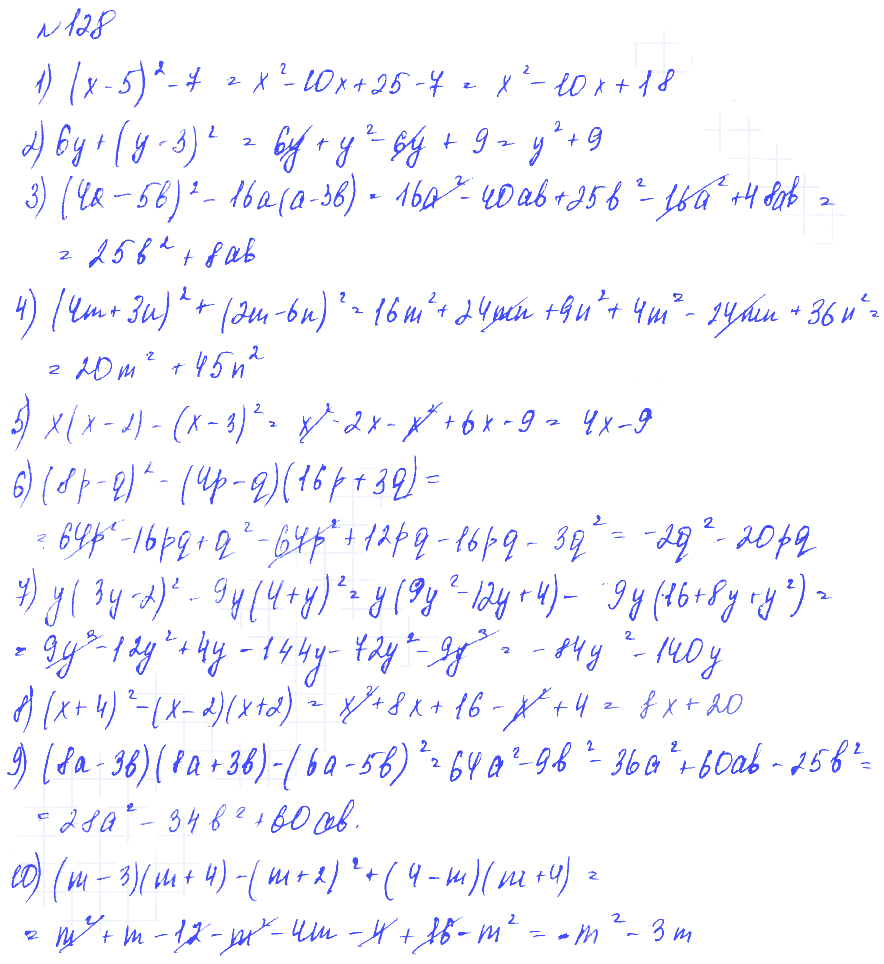 №128
1) (x-5)² - 7 = x² - 10x + 25 - 7 = x² - 10x + 18
2) 6y + (y-3)² = 6y + y² - 6y + 9 = y² + 9
3) (4a - 5b)² - 16a(a-3b) = 16a² - 40ab + 25b² - 16a² + 48ab =
= 25b² + 8ab
4) (4m+3n)² + (2m-6n)² = 16m² + 24mn + 9n² + 4m² - 24mn + 36n² =
= 20m² + 45n²
5) x(x-2) - (x-3)² = x² - 2x - x² + 6x - 9 = 4x - 9
6) (8p-q)² - (4p-q)(16p+3q) =
= 64p² - 16pq + q² - 64p² + 12pq - 16pq - 3q² = -2q² - 20pq
7) y(3y-2)² - 9y(4+y)² = y(9y² - 12y + 4) - 9y(16 + 8y + y²) =
= 9y³ - 12y² + 4y - 144y - 72y² - 9y³ = -84y² - 140y
8) (x+4)² - (x-2)(x+2) = x² + 8x + 16 - x² + 4 = 8x + 20
9) (8a-3b)(8a+3b) - (6a-5b)² = 64a² - 9b² - 36a² + 60ab - 25b² =
= 28a² - 34b² + 60ab.
10) (m-3)(m+4) - (m+2)² + (4-m)(m+4) =
= m² + m - 12 - m² - 4m - 4 + 16 - m² = -m² - 3m